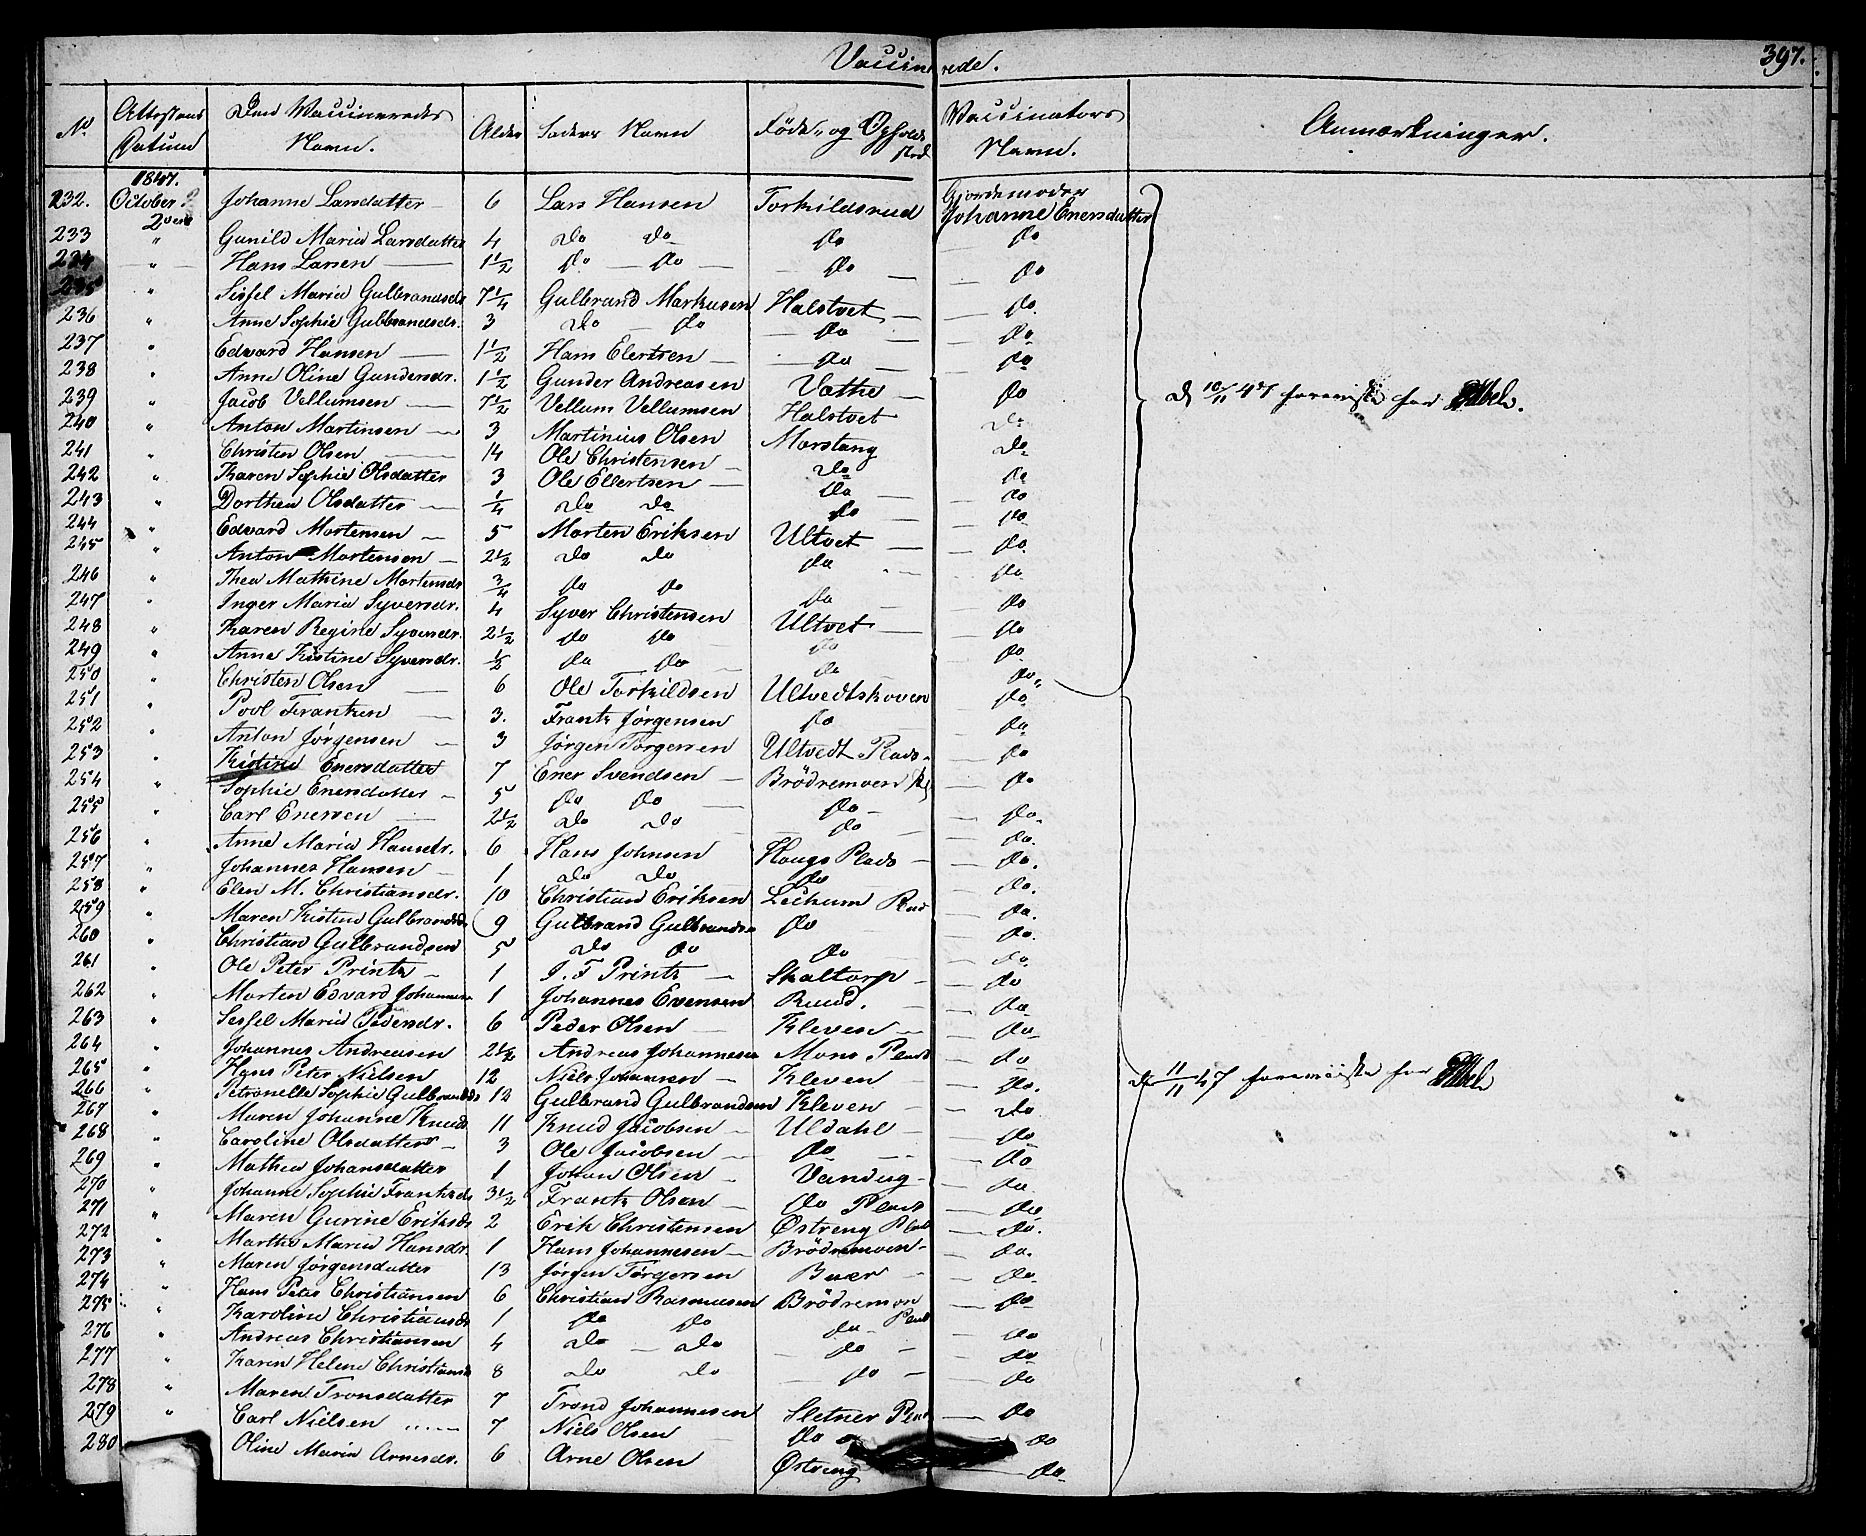 Vaccinerede. 397.
No. Attestens Datum Den Vaccineredes Navn. Alder Faders Navn Føde- og Opholdssted Vaccinators Navn. Anmærkninger.
1847.
232. October 6 Johanne Larsdatter 6 Lars Hansen Torkildsrud Gjordemoder Johanne Enersdatter
233 " Gunild Maria Larsdatter 4 Do Do do do
234 " Hans Larsen 1 1/2 do do do do
235 " Sissel Maria Gulbrandsdr 7 1/4 Gulbrand Markusen Halstvet do
236 " Anne Sophie Gulbrandsdr. 3 Do do do do
237 " Edvard Hansen 1 1/2 Hans Elertsen do do
238 " Anne Oline Gundersdr. 1 1/2 Gunder Andreasen Vathe do
239 " Jacob Vellumsen 7 1/2 Vellum Vellumsen Halstvet do
240 " Anton Martinsen 3 Martinius Olsen Morstang do
241 " Christen Olsen 14 Ole Christensen do do
242 " Karen Sophie Olsdatter 3 Ole Ellertsen do do
243 " Dorthea Olsdatter 1/4 Do Do do do
244 " Edvard Mortensen 5 Morten Eriksen Ultvet do
245 " Anton Mortensen 2 1/2 Do Do do do
246 " Thea Mathine Mortensdr 3/4 do do do do
247 " Inger Maria Syversdr. 4 Syver Christensen Ultvet do
248 " Karen Regine Syversdr. 2 1/2 do do do do
249 " Anne Kistine Syversdr. 1/2 do do do do
250 " Christen Olsen 6 Ole Torkildsen Ultvedtskoven do
251 " Povl Frantzen 3. Frantz Jørgensen do do
252 " Anton Jørgensen 3 Jørgen Torgersen Ultvedt Plads do
253 " Kistine Enersdatter 7 Ener Svendsen Brödremoen do
254 " Sophie Enersdatter 5 do do do do
255 " Carl Enersen 2 1/2 Do Do do do
256 " Anne Maria Hansdr. 6 Hans Johnsen Haugs Plads do
257 " Johannes Hansen 1 Do Do do do
258 " Elen M. Christiansdr. 10 Christian Eriksen Lechum do
259 " Maren Kistine Gulbrandsd 9 Gulbrand Gulbrandsen do do
260 " Christian Gulbrandsen 5 Do do do do
261 " Ole Peter Printz 1 J. F Printz Skaltorp do
262 " Morten Edvard Johannesen 1 Johannes Evensen Ruud. do
263 " Sessel Maria Pedersdr. 6 Peder Olsen Kleven do
264 " Johannes Andreasen 2 1/2 Andreas Johannesen Mons Plads do
265 " Hans Peter Nielsen 12 Niels Johansen Kleven do
266 " Petronelle Sophie Gulbrandsd 12 Gulbrand Gulbrandsen Kleven Do
267 " Maren Johanne Knudsd 11 Knud Jacobsen Uldahl do
268 " Caroline Olsdatter 3 Ole Jacobsen do do
269 " Mathea Johansdatter 1 Johan Olsen Vandug do
270 " Johanne Sophie Frantzsd 3 1/2 Frantz Olsen do Plads do
271 " Maren Gurine Eriksdr 2 Erik Christensen Østreng Plads do.
272 " Marthe Maria Hansdr. 1 Hans Johannesen Brödremoen do.
273 " Maren Jørgensdatter 13 Jørgen Torgersen Buer do
274 " Hans Peter Christiansen 6 Christian Rasmusen Brödremon Plads do
275 " Karoline Christiansdr 1 do do do do
276 " Andreas Christiansen 4 Do do do do
277 " Karen Helene Christiansd 8 Do do do do
278 " Maren Tronsdatter 7 Trond Johannesen Sletner Plads do
279 " Carl Nielsen 7 Niels Olsen do do
280 Oline Maria Arnesdr. 6 Arne Olsen Østreng do
D 10/11 47 foreviist for
D 11/11 47 foreviist for